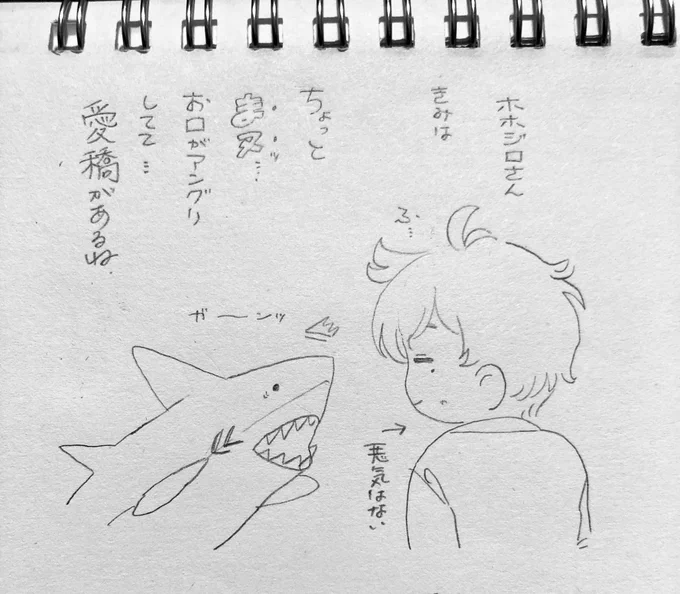 ホホジロさん
きみは
ちょっと
お口がアングリ
してて…
愛稿があるね
ふ…
ガーンッ
悪気はない